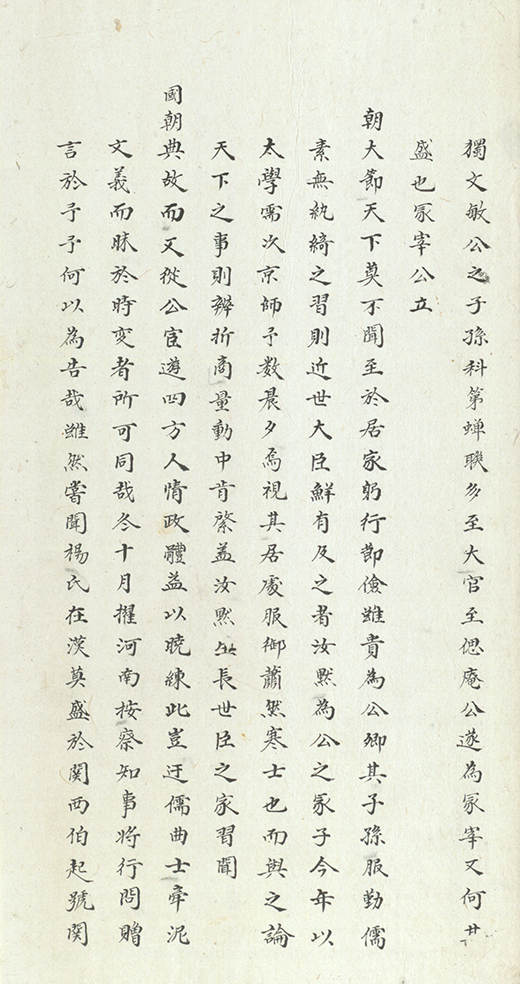 獨文敏公之子孫科第蟬聯多至大官至偲庵公遂為冡宰又何其
盛也冡宰公立
朝大節天下莫不聞至於居家躬行節儉雖貴為公卿其子孫服勤儒
素無紈綺之習則近世大臣鮮有及之者汝默為公之冡子今年以
太學需次京師予数晨夕焉視其居處服御蕭然寒士也而與之論
天下之事則辨折商量動中肯綮葢汝默生長世臣之家習聞
國朝典故而又從公宦遊四方人情政體益以曉練此豈迂儒曲士牽泥
文義而昧於時变者所可同哉冬十月擢河南按察知事将行問贈
言於予予何以為告哉雖然甞聞楊氏在漢莫盛於関西伯起號関